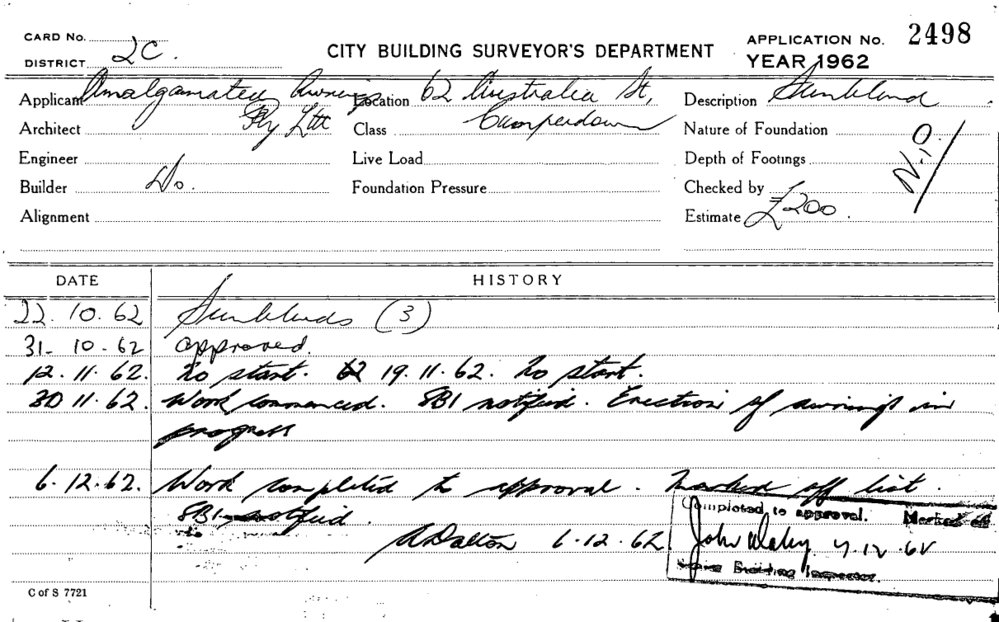 CARD No.
DISTRICT 2C.
CITY BUILDING SURVEYOR'S DEPARTMENT
APPLICATION No. 2498
YEAR 1962
Applicant Amalgamated Awnings Location 62 Australia St, Description Sunblind
Architect Pty Ltd Class Camperdown Nature of Foundation
Engineer Live Load Depth of Footings
Builder Do. Foundation Pressure Checked by
Alignment Estimate £200.
N.O.
DATE HISTORY
22. 10. 62 Sunblinds (3)
31- 10 - 62 approved.
12. 11. 62. No start. 19. 11. 62. No start.
30 11. 62. Work commenced. SBI notified. Erection of awnings in
progress
6. 12. 62. Work completed to approval. Marked off list.
SBI notified.
Completed to approval. Marked off
ADalton 6.12.62
John 7.12.62
Senior Building Inspector.
C of S 7721